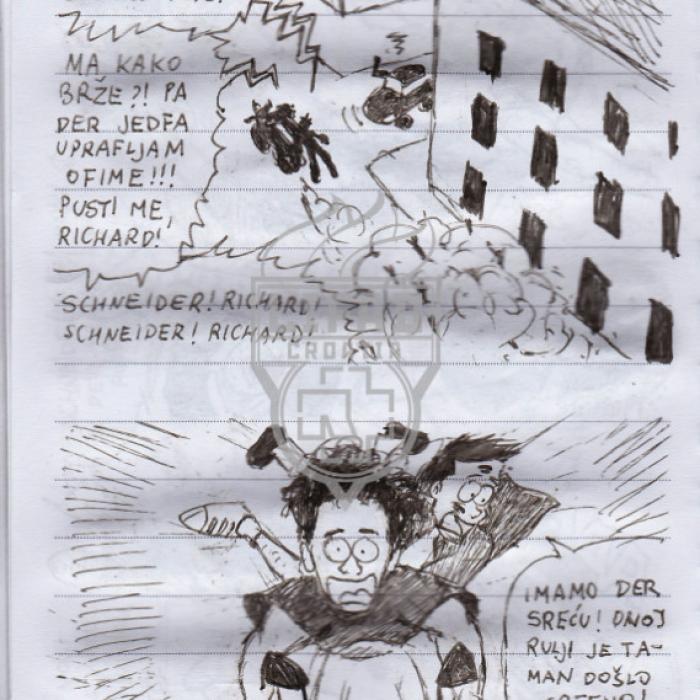 MA KAKO
BRŽE?! PA
DER JEDFA
UPRAFLJAM
OFIME!!!
PUSTI ME,
RICHARD!
SCHNEIDER! RICHARD!
SCHNEIDER! RICHARD!
CROATIA
IMAMO DER
SREĆU! ONOJ
RULJI JE TA-
MAN DOŠLO